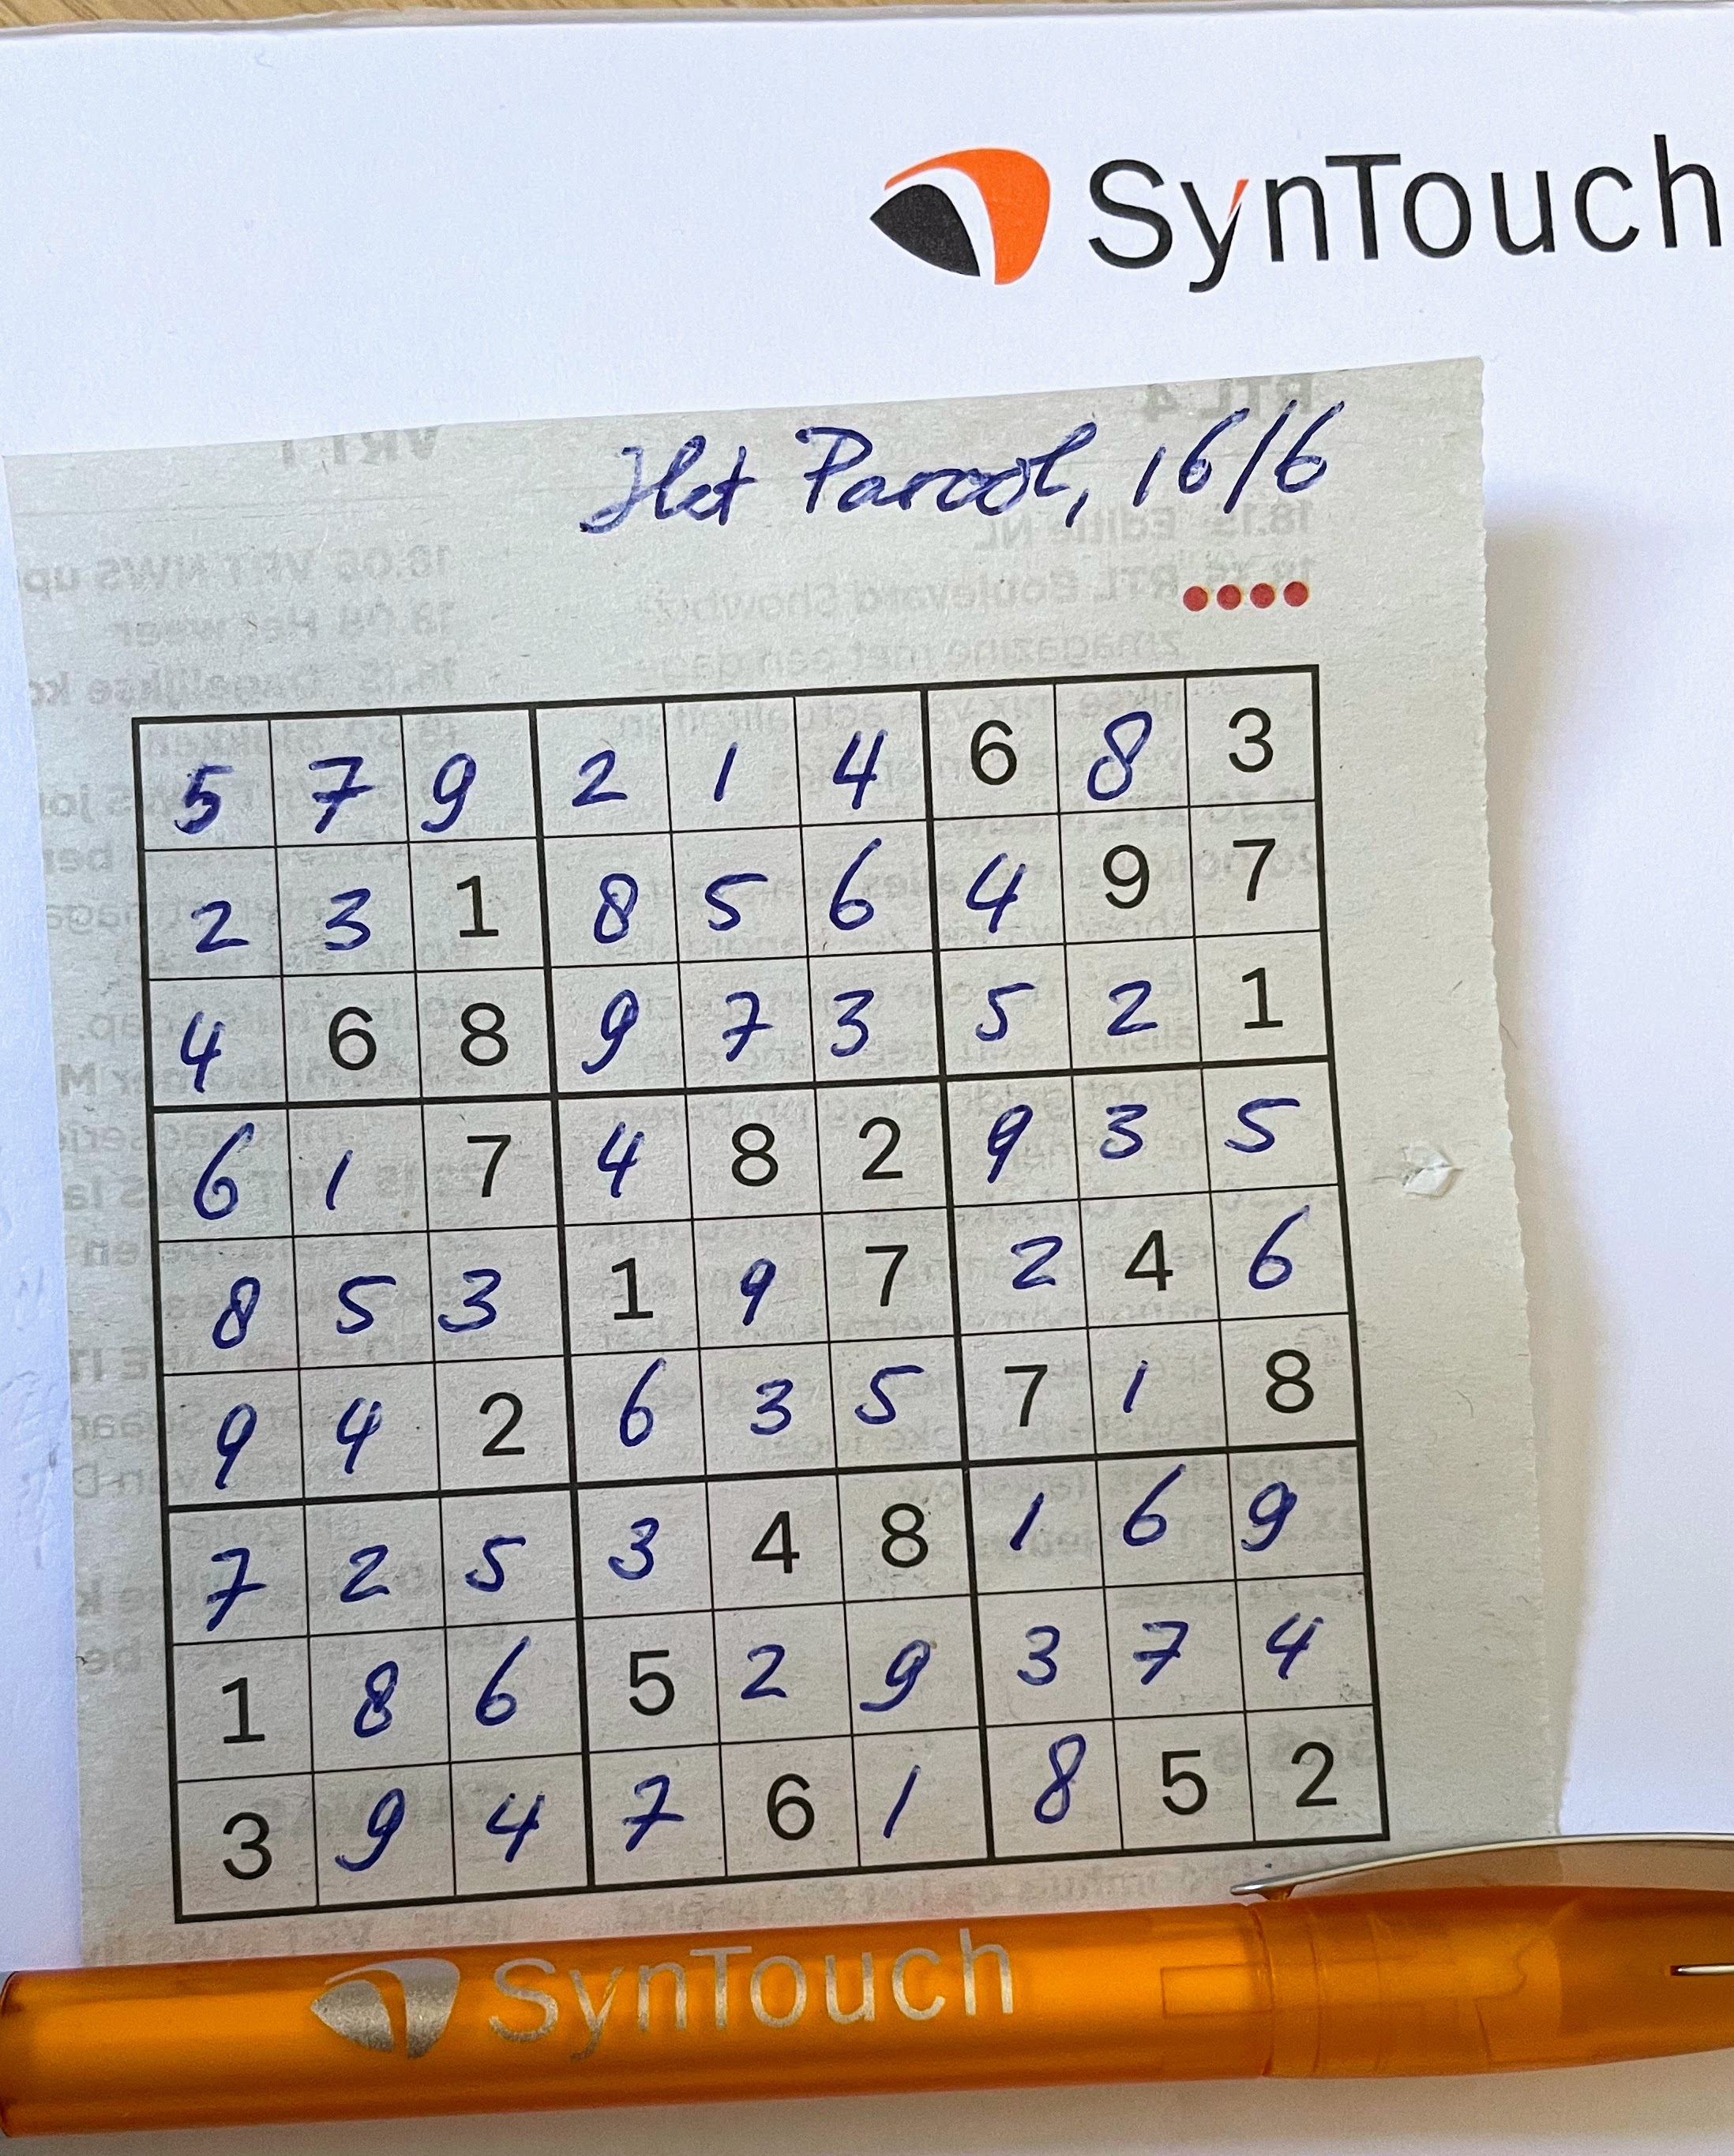 SynTouch
Het Parool, 16/6
5 7 9 2 1 4 6 8 3
2 3 1 8 5 6 4 9 7
4 6 8 9 7 3 5 2 1
6 1 7 4 8 2 9 3 5
8 5 3 1 9 7 2 4 6
9 4 2 6 3 5 7 1 8
7 2 5 3 4 8 1 6 9
1 8 6 5 2 9 3 7 4
3 9 4 7 6 1 8 5 2
SynTouch